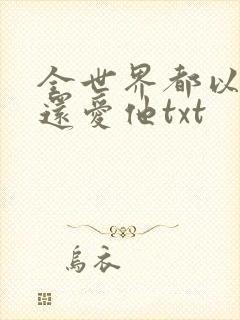 全世界都以
還愛他txt
烏衣